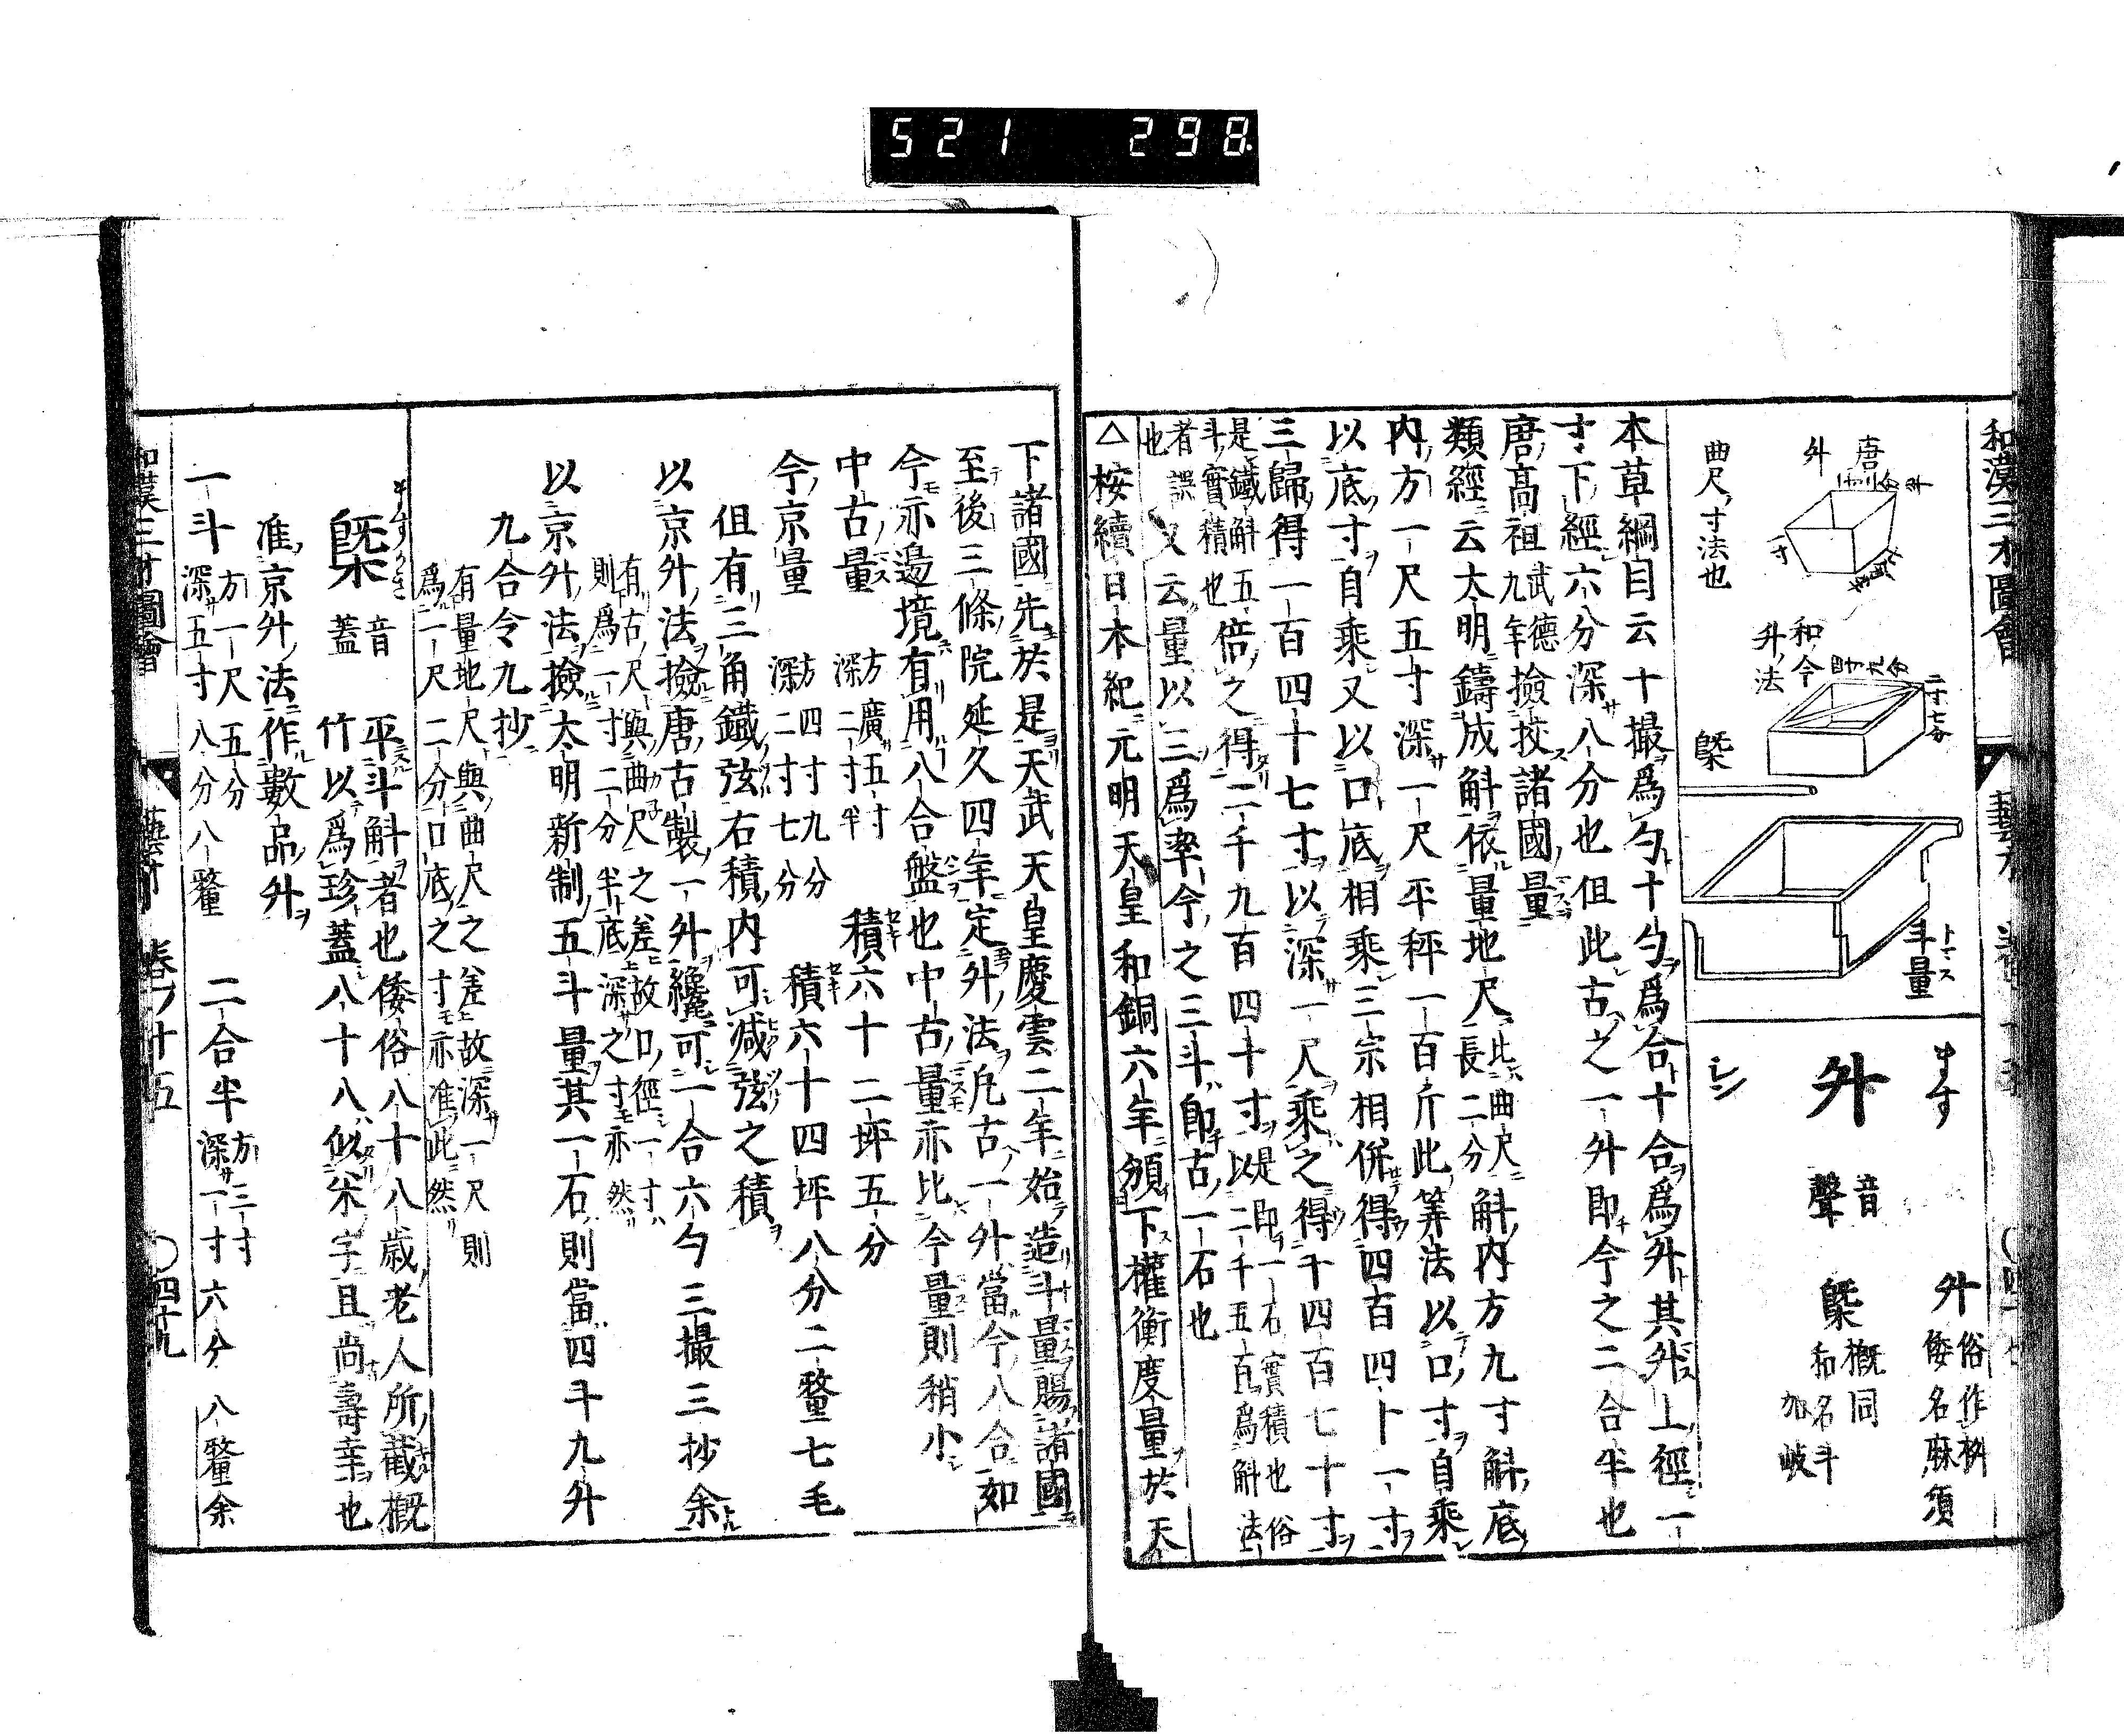 521 298
和漢三才圖會
唐
升
曲尺寸法也
一寸
和今
升法
四寸九分
二寸七分
槩
斗量
トマス
ます
升
音
聲
升 俗作枡
倭名麻須
槩 概同
和名斗
加岐
シン
本草綱目云十撮爲勺十勺爲合十合爲升其升上徑一
寸下經六分深八分也但此古之一升即今之二合半也
唐高祖武德九年撿挍諸國量
類經云大明鑄成斛依量地尺此曲尺長二分斛內方九寸斛底
內方一尺五寸深一尺平秤一百斤此筭法以口寸自乘
以底寸自乘又以口底相乘三宗相併得四百四十一寸
三歸得一百四十七寸以深一尺乘之得千四百七十寸
是鐵斛五倍之得二千九百四十寸是即一石實積也俗
以二千五百爲斛法
斗實積也
者誤也
又云量以三爲率今之三斗即古一石也
△桉續日本紀元明天皇和銅六年頒下權衡度量於天
下諸國先於是天武天皇慶雲二年始造斗量賜諸國
至後三條院延久四年定升法凡古一升當今八合如
今亦邊境有用八合盤也中古量亦比今量則稍小
中古量 方廣五寸
深二寸半 積六十二坪五分
今京量 方四寸九分
深二寸七分 積六十四坪八分二釐七毛
但有三角鐵弦右積內可減弦之積
以京升法撿唐古製一升纔可一合六勺三撮三抄余
有古尺與曲尺之差故口徑一寸
則爲一寸二分半底深之寸亦然
以京升法撿大明新制五斗量其一石則當四斗九升
九合令九抄
有量地尺與曲尺之差故深一尺則
爲一尺二分口底之寸亦准此然
ますかき
槩
音
蓋
平斗斛者也倭俗八十八歲老人所截概
竹以爲珍蓋八十八似米字且尚壽幸也
准京升法作數品升
一斗 方一尺五分
深五寸八分八釐
二合半 方三寸
深一寸六分八釐余
和漢三才圖會
藝才 卷ノ十五
〇四十九